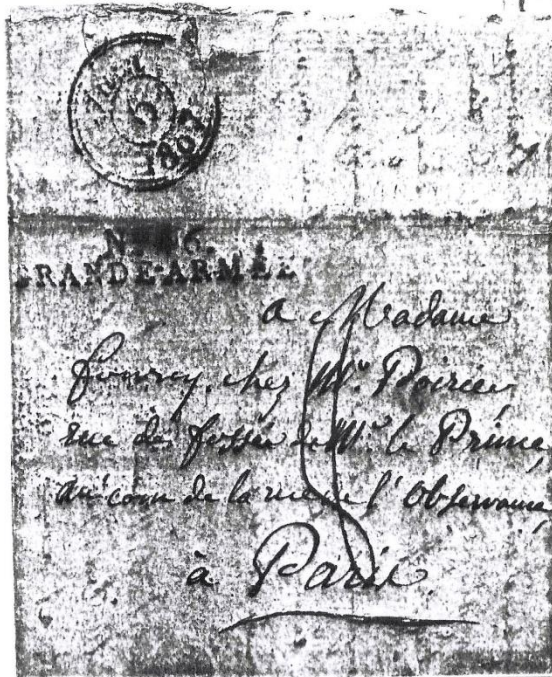 Avril
5
1807
N 16.
GRANDE-ARMÉE
a Madame
fourcy, chez Mr. Poirier
rue des fossés de Mr. le Prince,
au coin de la rue de l'Observance,
à Paris